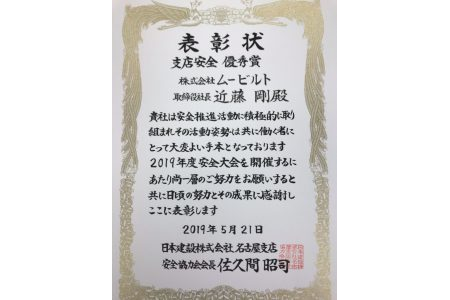 表彰状
支店安全 優秀賞
株式会社 ムービルト
取締役社長 近藤 剛殿
貴社は安全推進活動に積極的に取り
組まれその活動姿勢は共に働く者に
とって大変よい手本となっております
2019年度安全大会を開催するに
あたり尚一層のご努力をお願いすると
共に日頃の努力とその成果に感謝し
ここに表彰します
2019年5月21日
日本建設株式会社 名古屋支店
安全協力会会長 佐久間 昭司